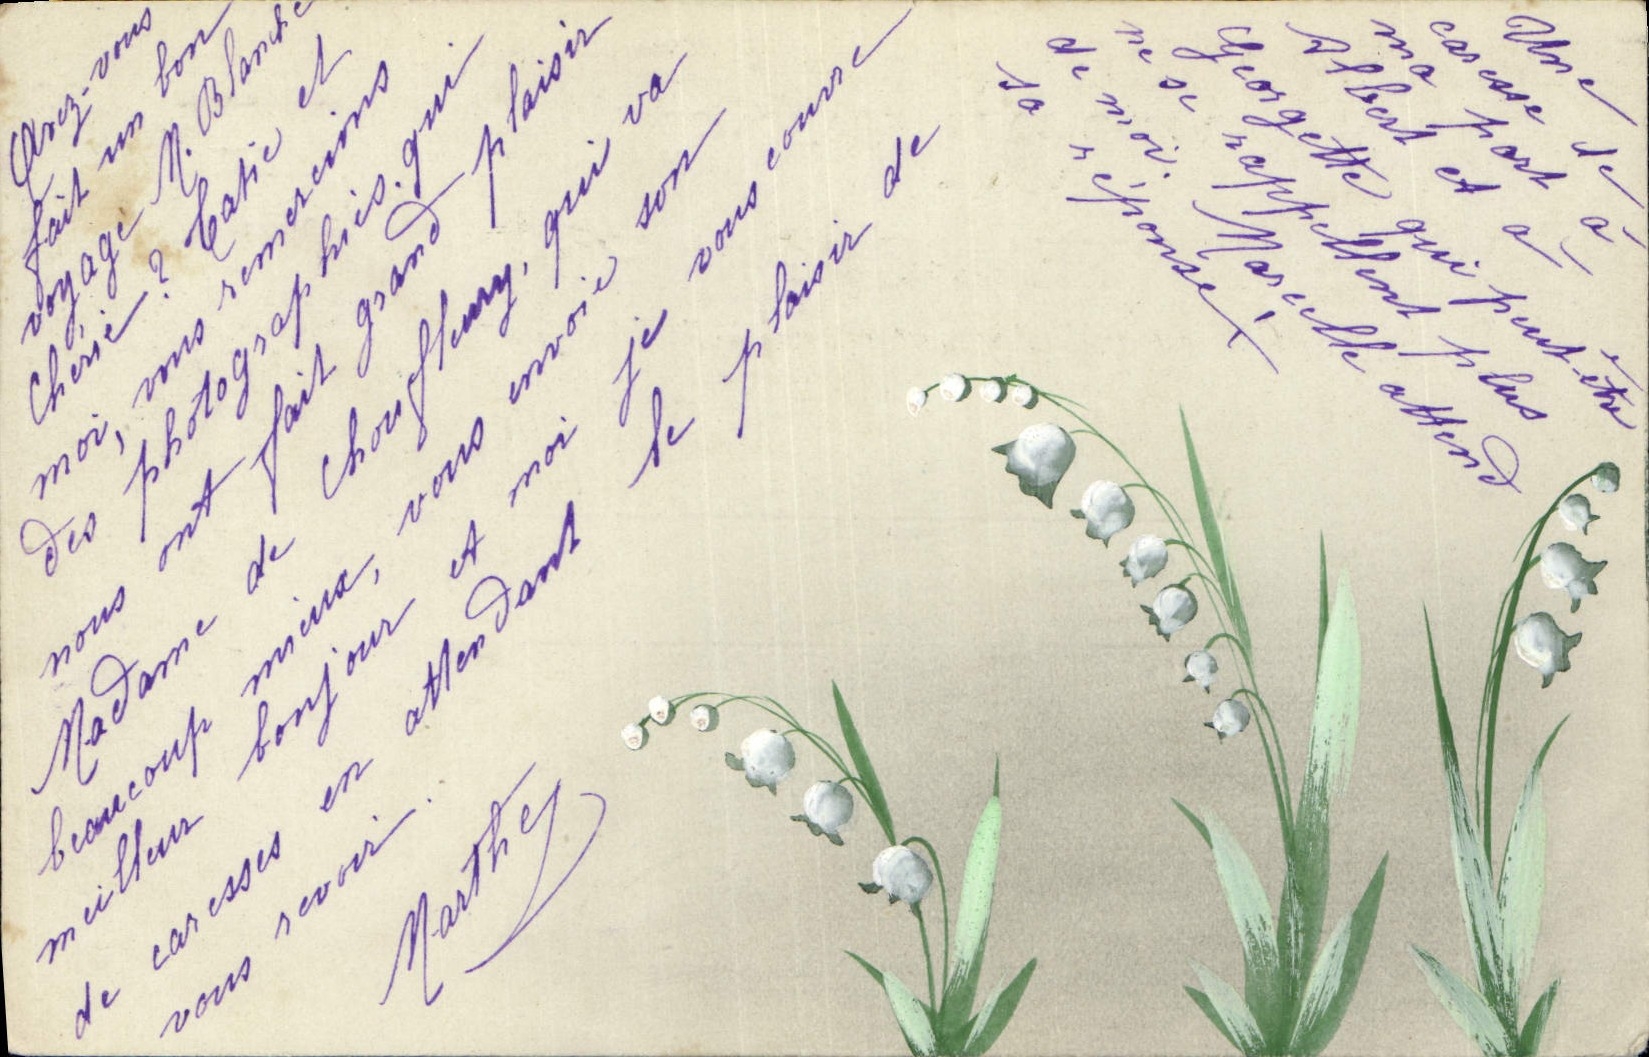 Avez-vous
fait un bon
voyage M. Blanche
chérie ? Catie et
moi, vous remercions
des photographies. qui
nous ont fait grand plaisir
Madame de Choufleury, qui va
beaucoup mieux, vous envoie son
meilleur bonjour et moi je vous couvre
de caresses en attendant le plaisir de
vous revoir.
Marthe
Une
caresse de
ma part à
Albert et à
Georgette qui peut-être
ne se rappellent plus
de moi. Marcelle attend
sa réponse !